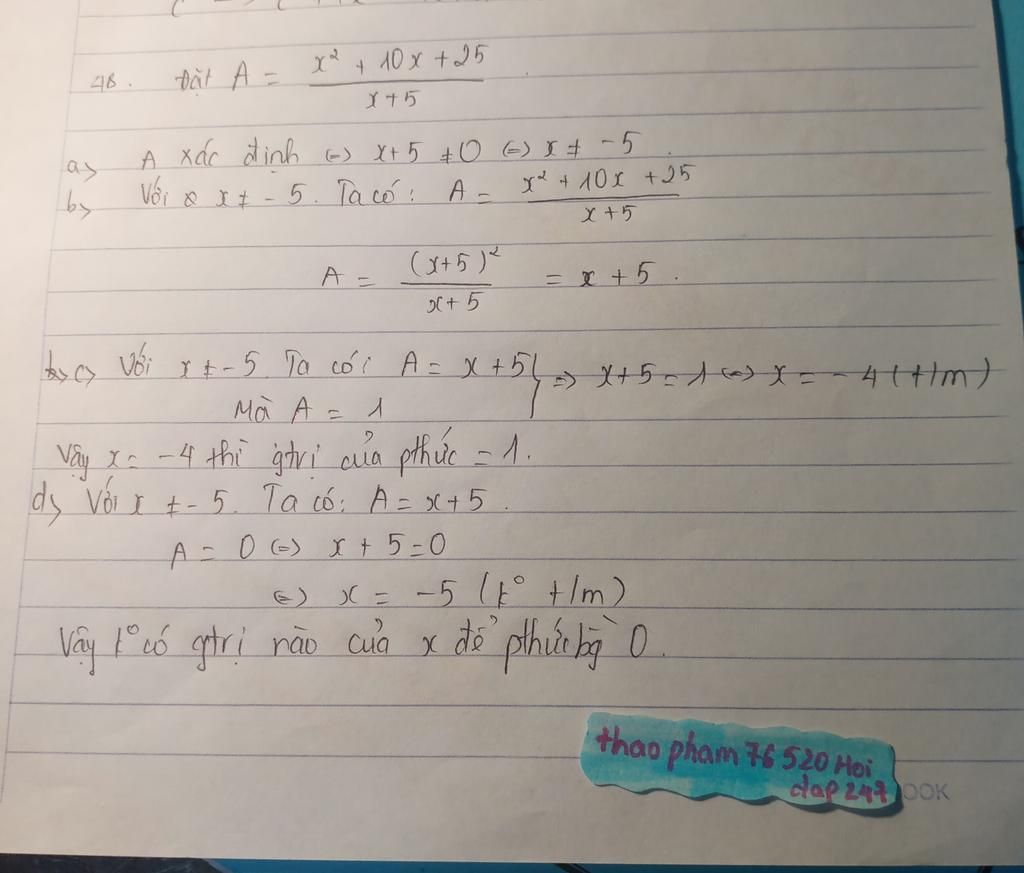 48. Đặt A = (x² + 10x + 25)/(x+5)
a> A xác định <=> x+5 ≠ 0 <=> x ≠ -5.
b> Với x ≠ -5. Ta có: A = (x² + 10x + 25)/(x+5)
A = (x+5)²/(x+5) = x + 5.
c> Với x ≠ -5. Ta có: A = x+5 } => x+5 = 1 <=> x = -4 (t/m)
Mà A = 1
Vậy x = -4 thì gtrị của pthức = 1.
d> Với x ≠ -5. Ta có: A = x+5.
A = 0 <=> x + 5 = 0
<=> x = -5 (k° t/m)
Vậy k° có gtrị nào của x để pthức bg̀ 0.
thao pham 76 520 Hoi
dap 247
OOK